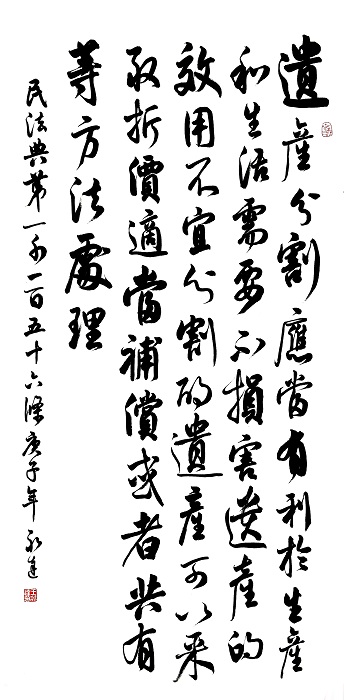 遺產分割應當有利於生產
和生活需要不損害遺產的
效用不宜分割的遺產可以采
取折價適當補償或者共有
等方法處理
民法典第一千一百五十六條庚子年永達